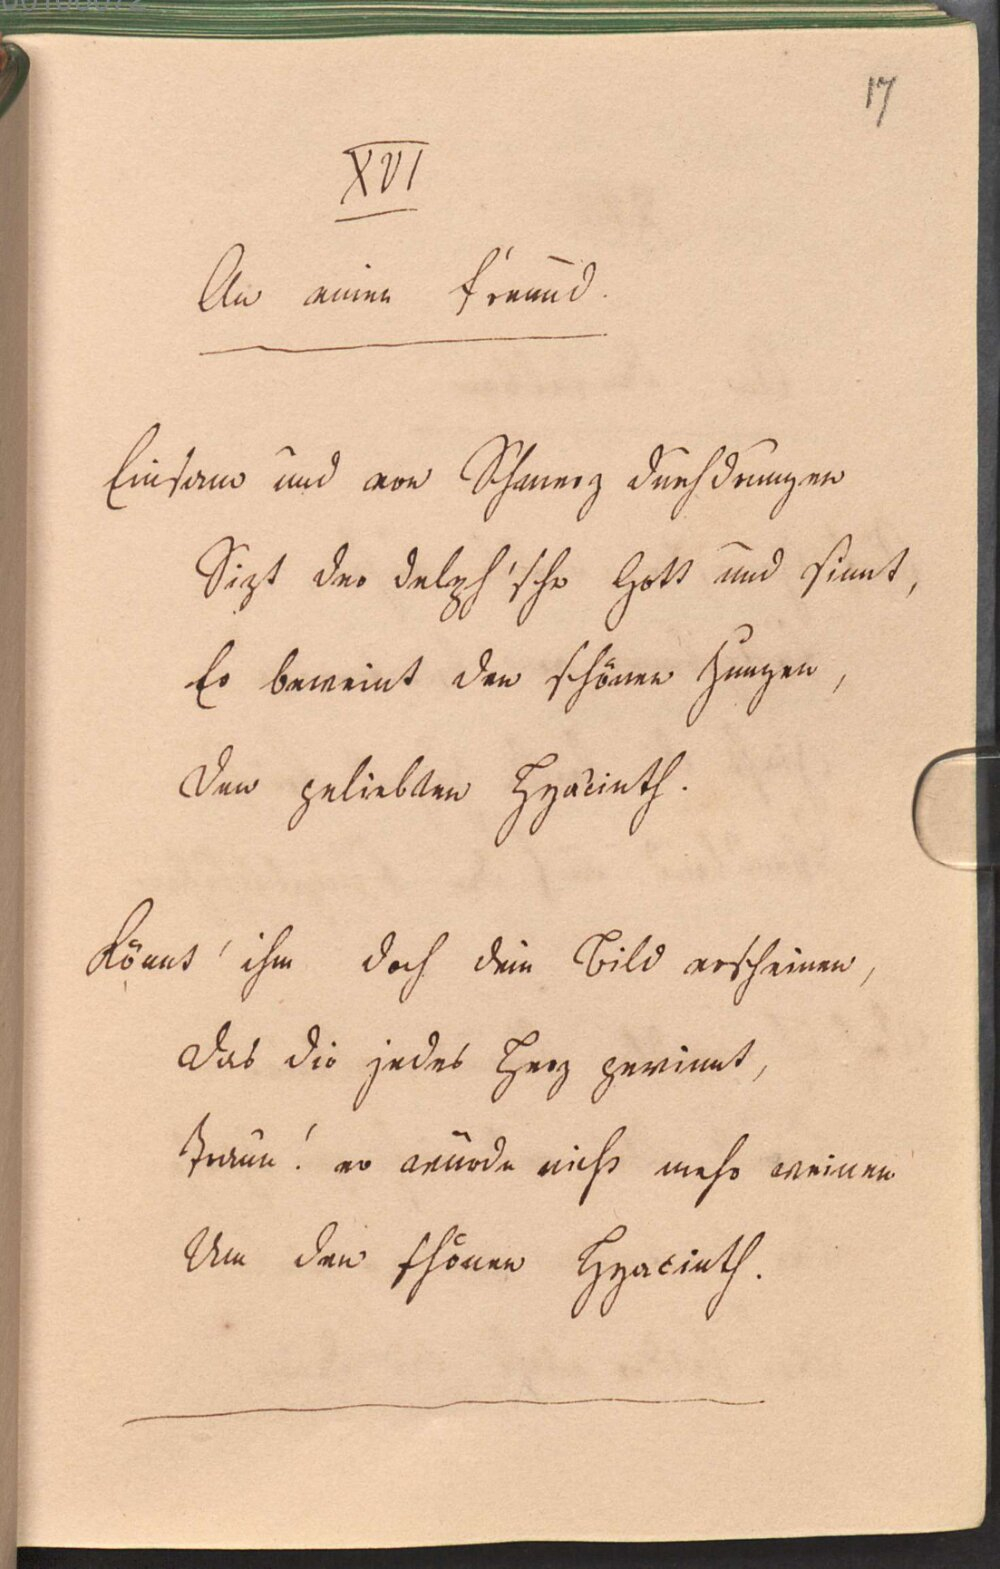 17
XVI
An einen Freund.
Einsam und von Schmerz durchdrungen
Sizt der delph'sche Gott und sinnt,
Er beweint den schönen Jungen,
Den geliebten Hyacinth.
Könnt' ihm doch dein Bild erscheinen,
Das dir jedes Herz gewinnt,
Traun! er würde nicht mehr weinen
Um den schönen Hyacinth.